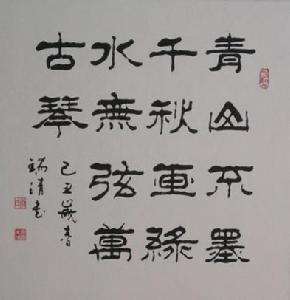 青山不墨
千秋画綠
水無弦萬
古琴
己丑歲春